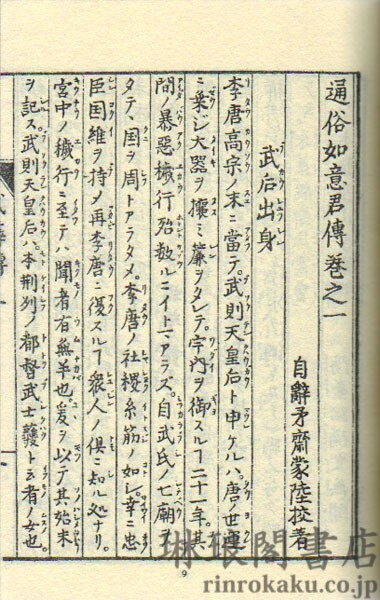 通俗如意君傳巻之一
自辭矛齋蒙陸挍著
武后出身
李唐高宗ノ末ニ當テ。武則天皇后ト申ケルハ。唐ノ世運
ニ乗ジ大器ヲ攘ミ。簾ヲタレテ。宇内ヲ御スルヿ二十一年。其
間ノ暴惡穢行殆ド數ルニイトマアラズ。自武氏ノ七廟ヲ
タテ、国ヲ周トアラタメ。李唐ノ社稷糸筋ノ如シ。幸ニ忠
臣国維ヲ持メ再李唐ニ復スルヿ衆人ノ倶ニ知ル処ナリ。
宮中ノ穢行ニ至テハ聞者有無半也。爰ヲ以テ其始末
ヲ記ス。武則天皇后ハ。本荊州ノ都督武士彠ト云者ノ女也。
9
琳琅閣書店
rinrokaku.co.jp